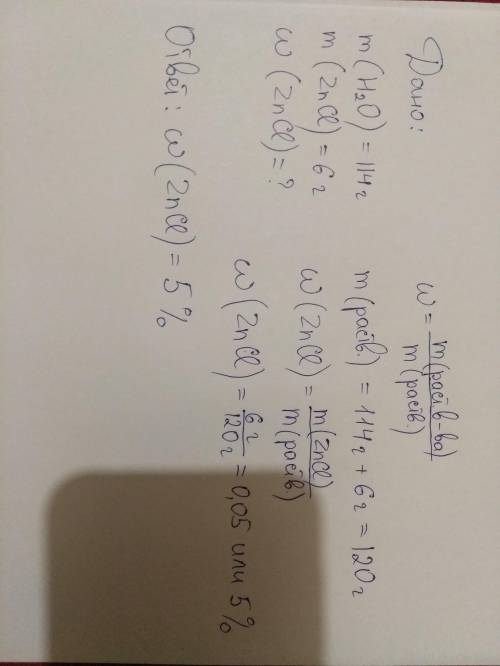 Дано:
m(H₂O) = 114г
m(ZnCl) = 6г
ω(ZnCl) = ?
ω = m(раств-ва) / m(раств.)
m(раств.) = 114г + 6г = 120г
ω(ZnCl) = m(ZnCl) / m(раств.)
ω(ZnCl) = 6г / 120г = 0,05 или 5%
Ответ: ω(ZnCl) = 5%